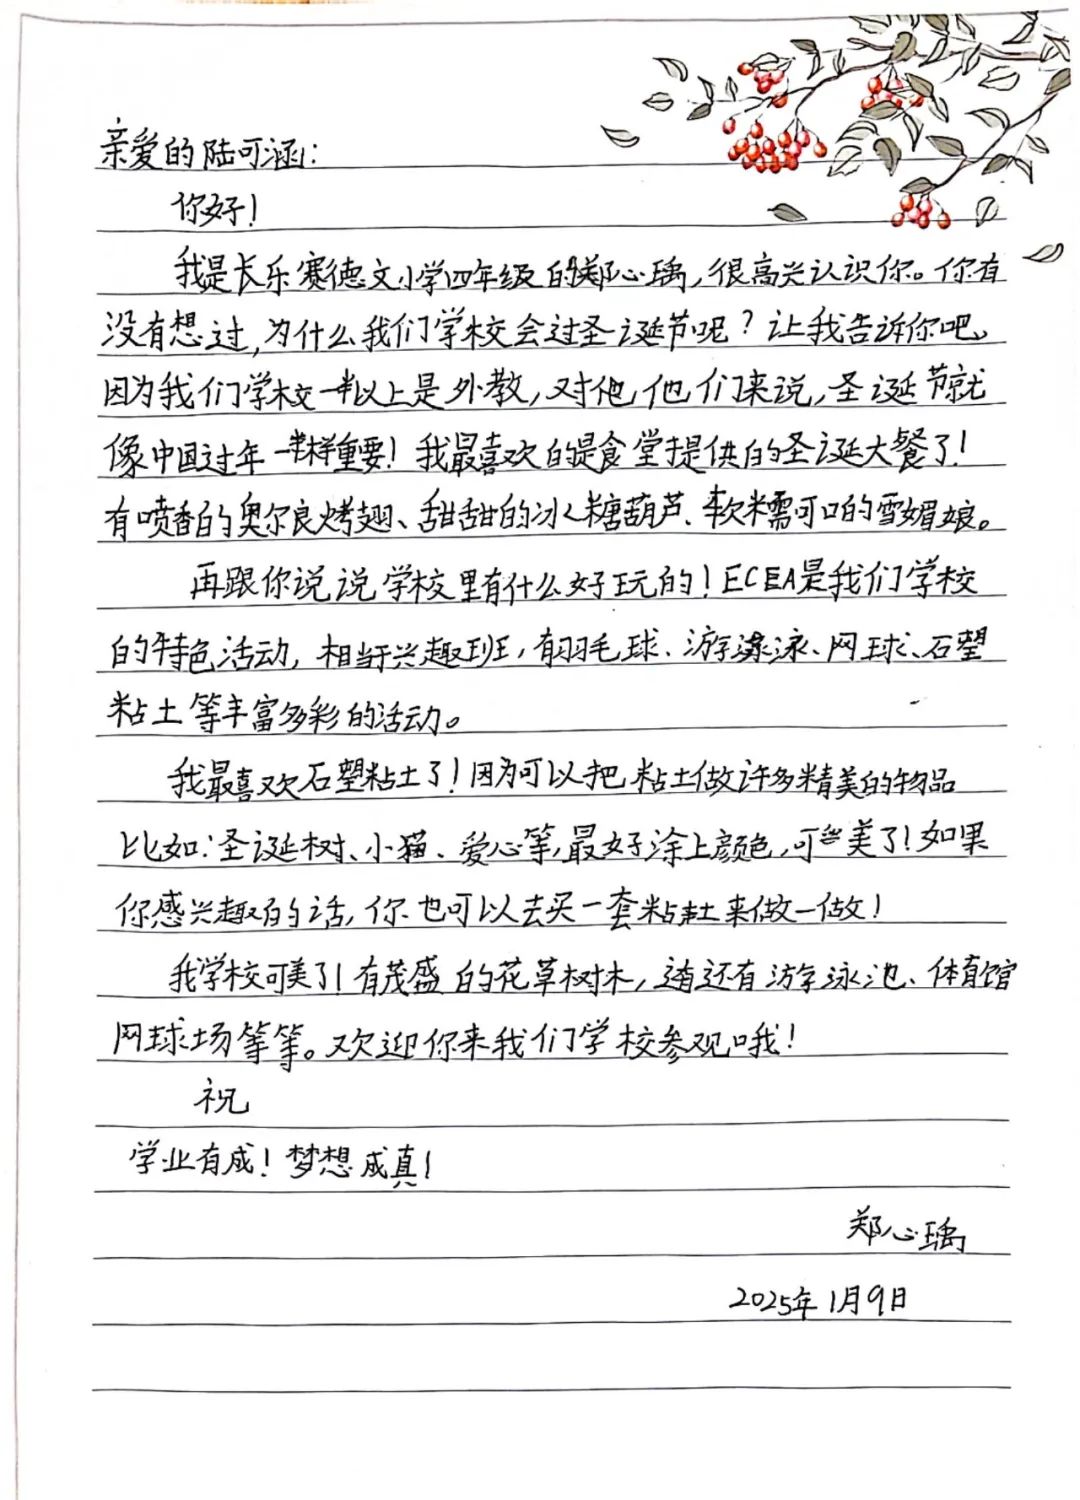 亲爱的陆可涵:
你好!
我是长乐赛德文小学四年级的郑心瑀,很高兴认识你。你有
没有想过,为什么我们学校会过圣诞节呢?让我告诉你吧。
因为我们学校一半以上是外教,对他他们来说,圣诞节就
像中国过年一样重要!我最喜欢的是食堂提供的圣诞大餐了!
有喷香的奥尔良烤翅、甜甜的冰糖葫芦、软糯可口的雪媚娘。
再跟你说说学校里有什么好玩的!ECEA是我们学校
的特色活动,相当于兴趣班,有羽毛球、游泳、网球、石塑
粘土等丰富多彩的活动。
我最喜欢石塑粘土了!因为可以把粘土做许多精美的物品
比如:圣诞树、小猫、爱心等,最好涂上颜色,可美了!如果
你感兴趣的话,你也可以去买一套粘土来做一做!
我学校可美了!有茂盛的花草树木,还有游泳池、体育馆
网球场等等。欢迎你来我们学校参观哦!
祝
学业有成!梦想成真!
郑心瑀
2025年1月9日